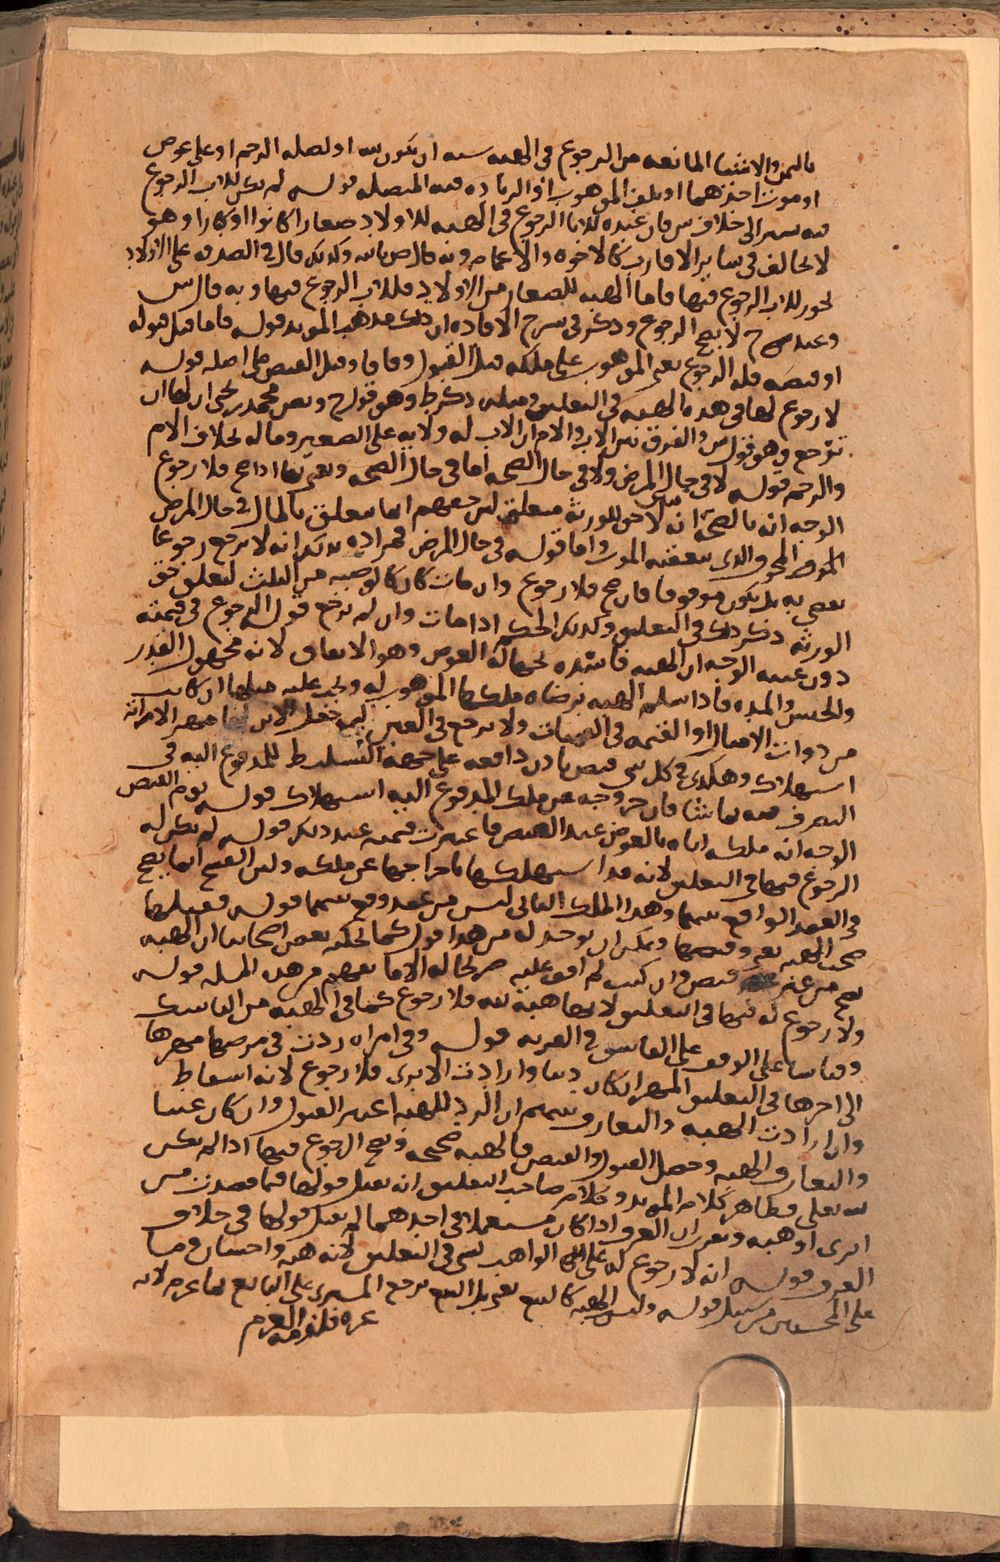 بالثمن والاشيا المانعه من الرجوع في الهبه سته ان يكون لله او لصله الرحم او على عوض
او موت احدهما او تلف الموهوب او الزياده فيه المتصله قوله لم يكن للاب الرجوع
فيه يشير الى خلاف ش فان عنده للابا الرجوع في الهبه للاولاد صغارا كانوا او كبارا وهو
لا يخالف في ساير الاقارب كالاخوه والاعمام وبه قال ض بالله وكذلك قال في الصدقه على الاولاد
يجوز للاب الرجوع فيها فاما الهبه للصغار من الاولاد فللاب الرجوع فيها وبه قال ش
وعند ح لا يصح الرجوع وذكر في شرح الافاده ان ذلك مذهب المويد قوله فاما قبل قبوله
او قبضه فله الرجوع يعني الموهوب على ملكه قبل القبول وفاقا وقبل القبض على اصله قوله
لا رجوع لها في هذه الهبه في التعليق ومثله ذكر ط وهو قول ح ونص محمد بن يحيى ان لها ان
ترجع وهو قول ش والفرق بين الاب والام ان الاب له ولايه على الصغير وماله بخلاف الام
والرحم قوله لا في حال المرض ولا في حال الصحه اما في حال الصحه فلا رجوع
الوجه انه بالصحه انه لا حق للورثه متعلق لان حقهم انما يتعلق بالمال في حال المرض
المخوف والذي يتعقبه الموت واما قوله في حال المرض فمراده بذلك انه لا يرجع رجوعا
يقضي به بل يكون موقوفا فان صح فلا رجوع وان مات كان كالوصيه من الثلث لتعلق حق
الورثه ذكر ذلك في التعليق وكذلك الحكم اذا مات وان لم يرجع قوله الرجوع في قيمته
دون عينه الوجه ان الهبه فاسده لجهاله العوض وهو الانفاق لانه مجهول القدر
والجنس والمده فاذا سلم الهبه برضاه ملكها الموهوب له ويجب عليه مثلها ان كانت
من ذوات الامثال او القيمه في ولا يرجع في العين مهر الامراته
استهلاك وهكذى في كل شي قبض باذن دافعه على جهة التسليط للمدفوع اليه في
التصرف فيه بما شا فان خروجه عن ملك المدفوع اليه استهلاك قوله يوم القبض
الوجه انه ملكه اياه بالعوض عند القبض فاعتبرت قيمته عند ذلك قوله لم يكن له
الرجوع فيها في التعليق لانه قد استهلكها باخراجها عن ملكه ولان الفسخ انما يصح
في العقد الواقع بينهما وهذا الملك الثاني ليس من عقد وقع بينهما قوله فقبلها
صحت الهبه يعني وقبضها ويمكن ان يوخذ له من هذا قول كما يحكيه بعض اصحابنا ان الهبه
تصح من غير قبض وان كنت لم اقف عليه صريحا له الا ما يفهم من هذه المسله قوله
ولا رجوع له فيها في التعليق لانها هبة لله فلا رجوع كما في الهبه من الفاسق
وقياسا على الوقف على الفاسق في القربه قوله وفي امراه ردت في مرضها مهرها
الى اخرها في التعليق المهر ان كان دينا وارادت الابرى فلا رجوع لانه اسقاط
وان ارادت الهبه والتعارف بينهم ان الرد للهبه اعتبر القبول وان كان عينا
والتعارف الهبه وحصل القبول والقبض فالهبه صحيحه ويصح الرجوع فيها اذا لم يكن
لله تعلى وظاهر كلام المويد وكلام صاحب التعليق انه يقبل قولها فيما قصدت من
ابرى او هبه وتقرير ان العرف اذا كان مستعملا في احدهما لم يقبل قولها في خلاف
العرف قوله انه لا رجوع له على الواهب بشي في التعليق لانه هبه واحسان وما
على المحسنين من سبيل قوله وليس الهبه كالبيع يعني بل البيع يرجع المشتري على البايع بما غرم لانه
غره فلزمه الغرم